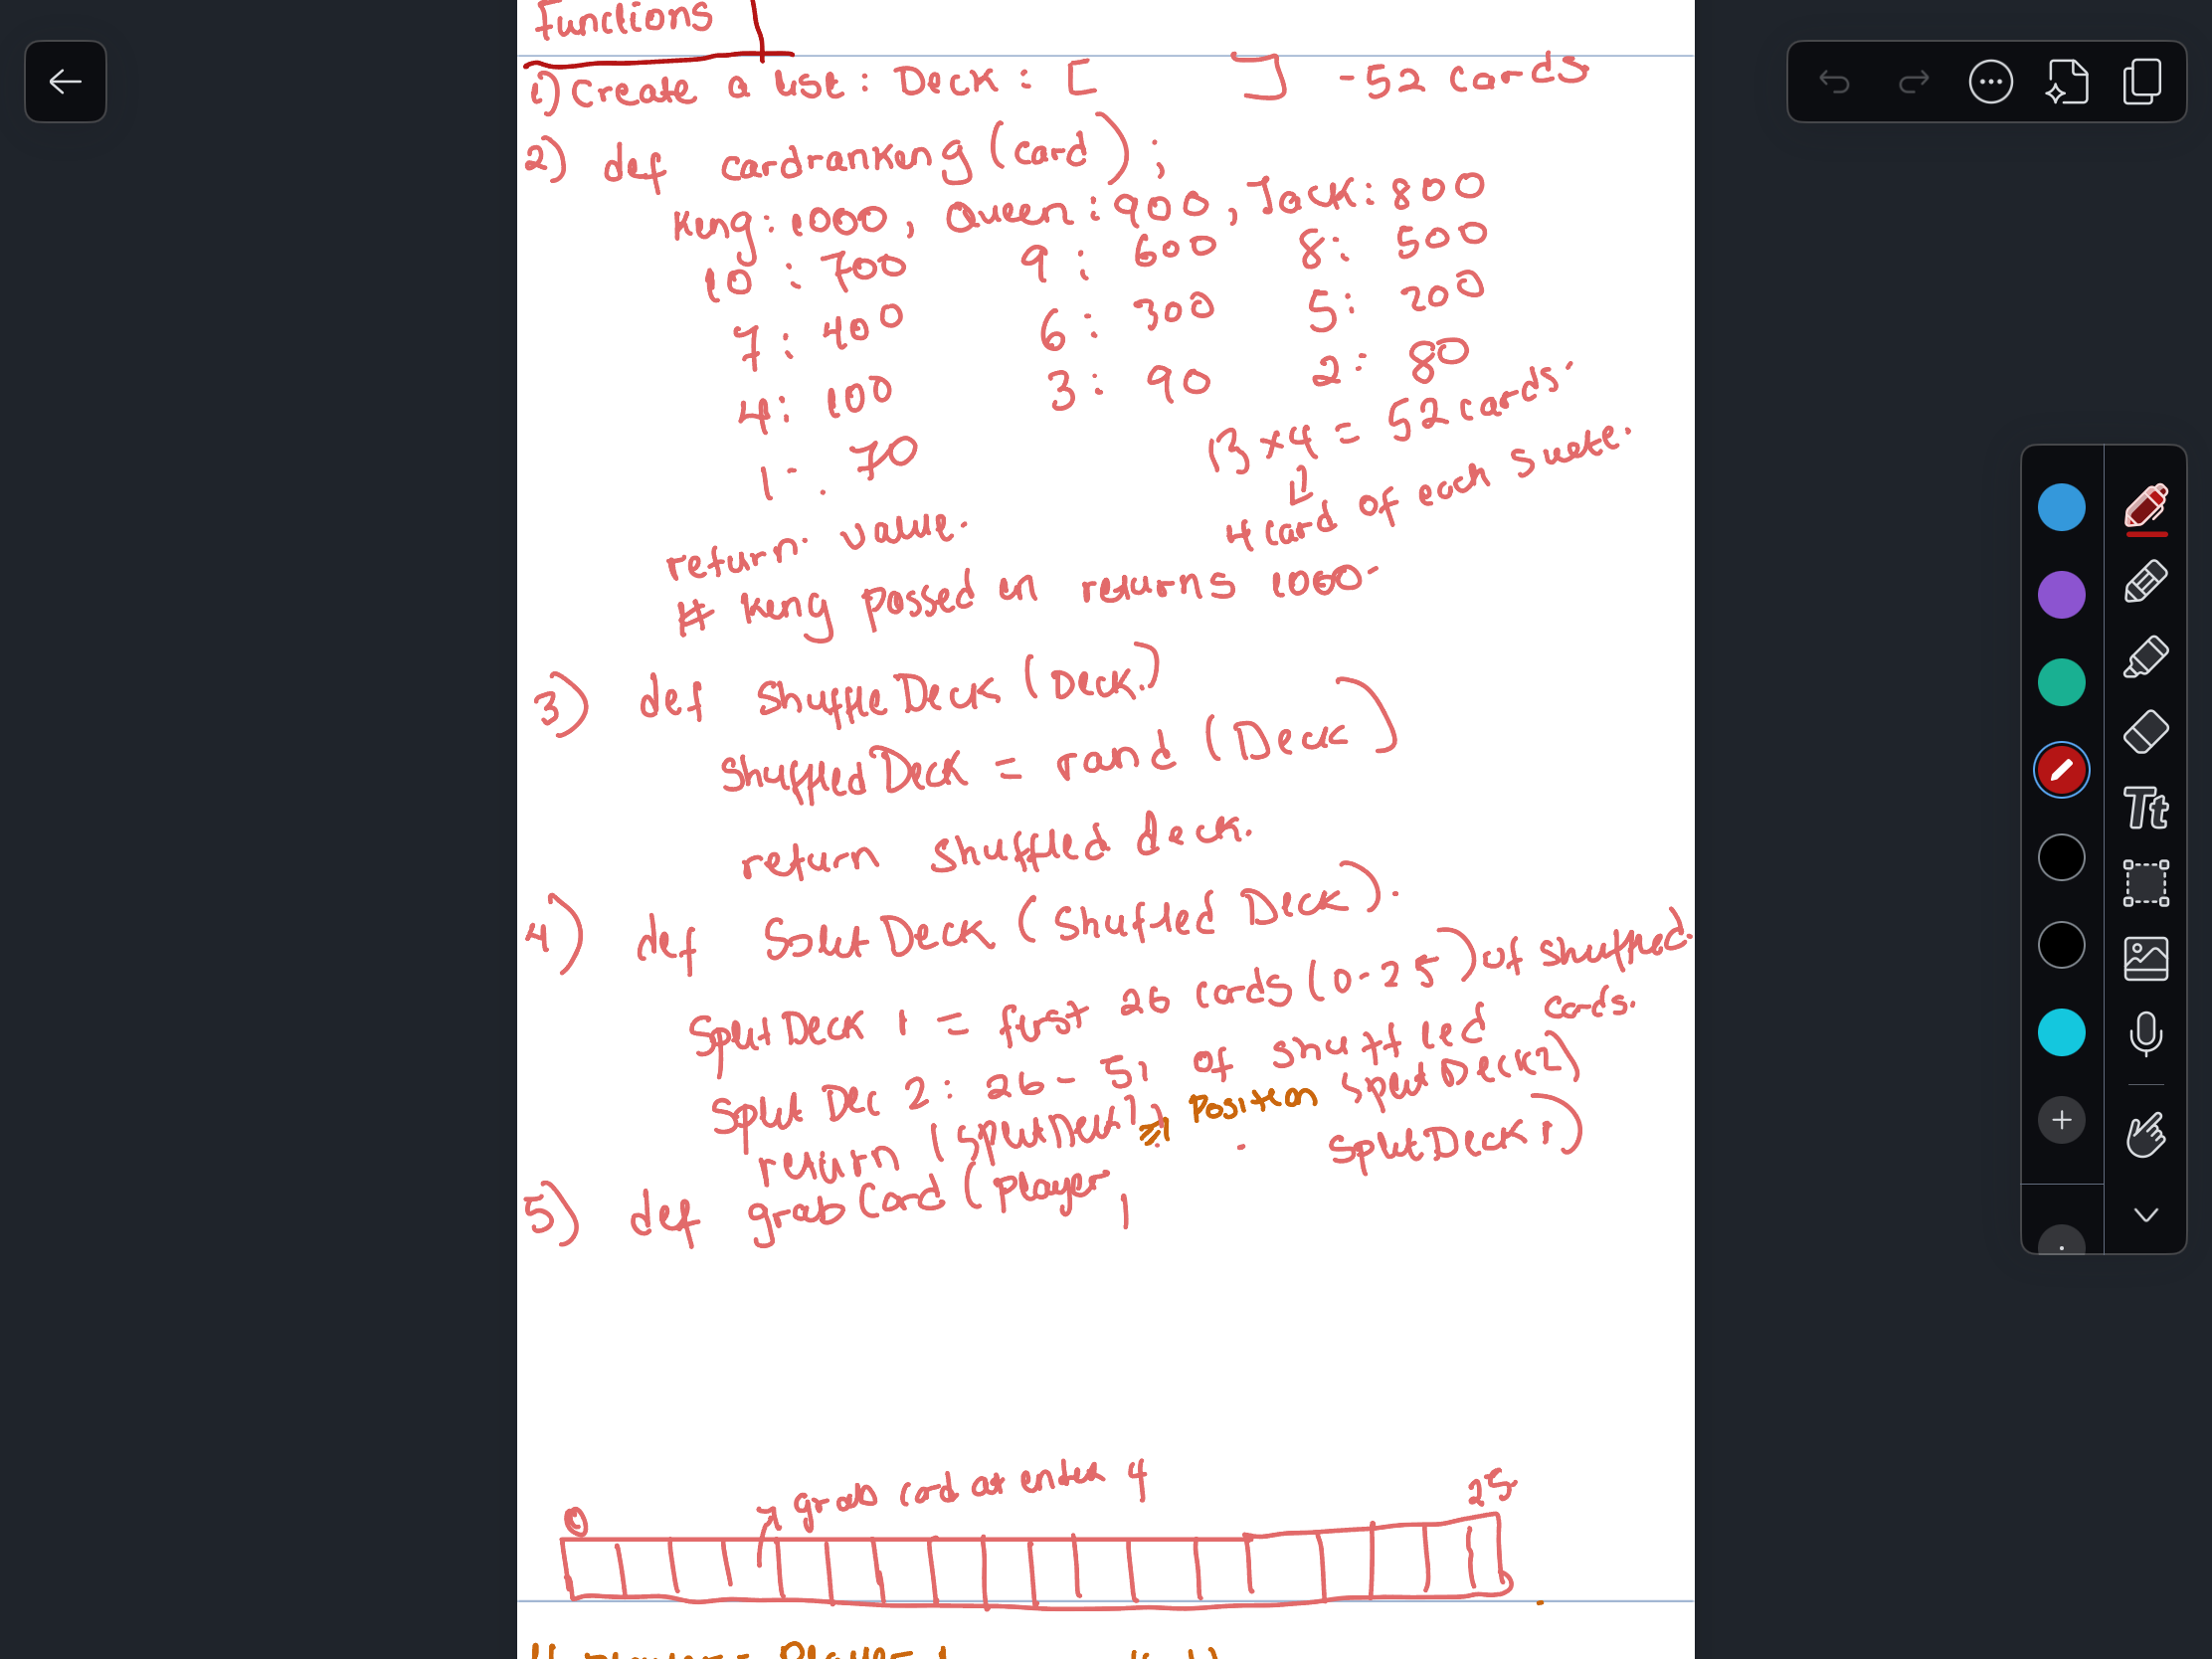 Functions
1) Create a list : Deck : [ ] - 52 cards
2) def cardranking (card) ;
King : 1000 , Queen : 900 , Jack : 800
10 : 700 9 : 600 8 : 500
7 : 400 6 : 300 5 : 200
4 : 100 3 : 90 2 : 80
1 : 70 13 x 4 = 52 cards.
4 card of each suite.
return value.
# King passed in returns 1000.
3) def Shuffle Deck (Deck.)
Shuffled Deck = rand (Deck)
return shuffled deck.
4) def Split Deck (Shuffled Deck).
Split Deck 1 = first 26 cards (0-25) of shuffled cards.
Split Dec 2 : 26 - 51 of shuffled
return (split Deck 1, Split Deck 2)
5) def grab Card (player, Position Split Deck 1)
grab card at index 4
0 25
Tt